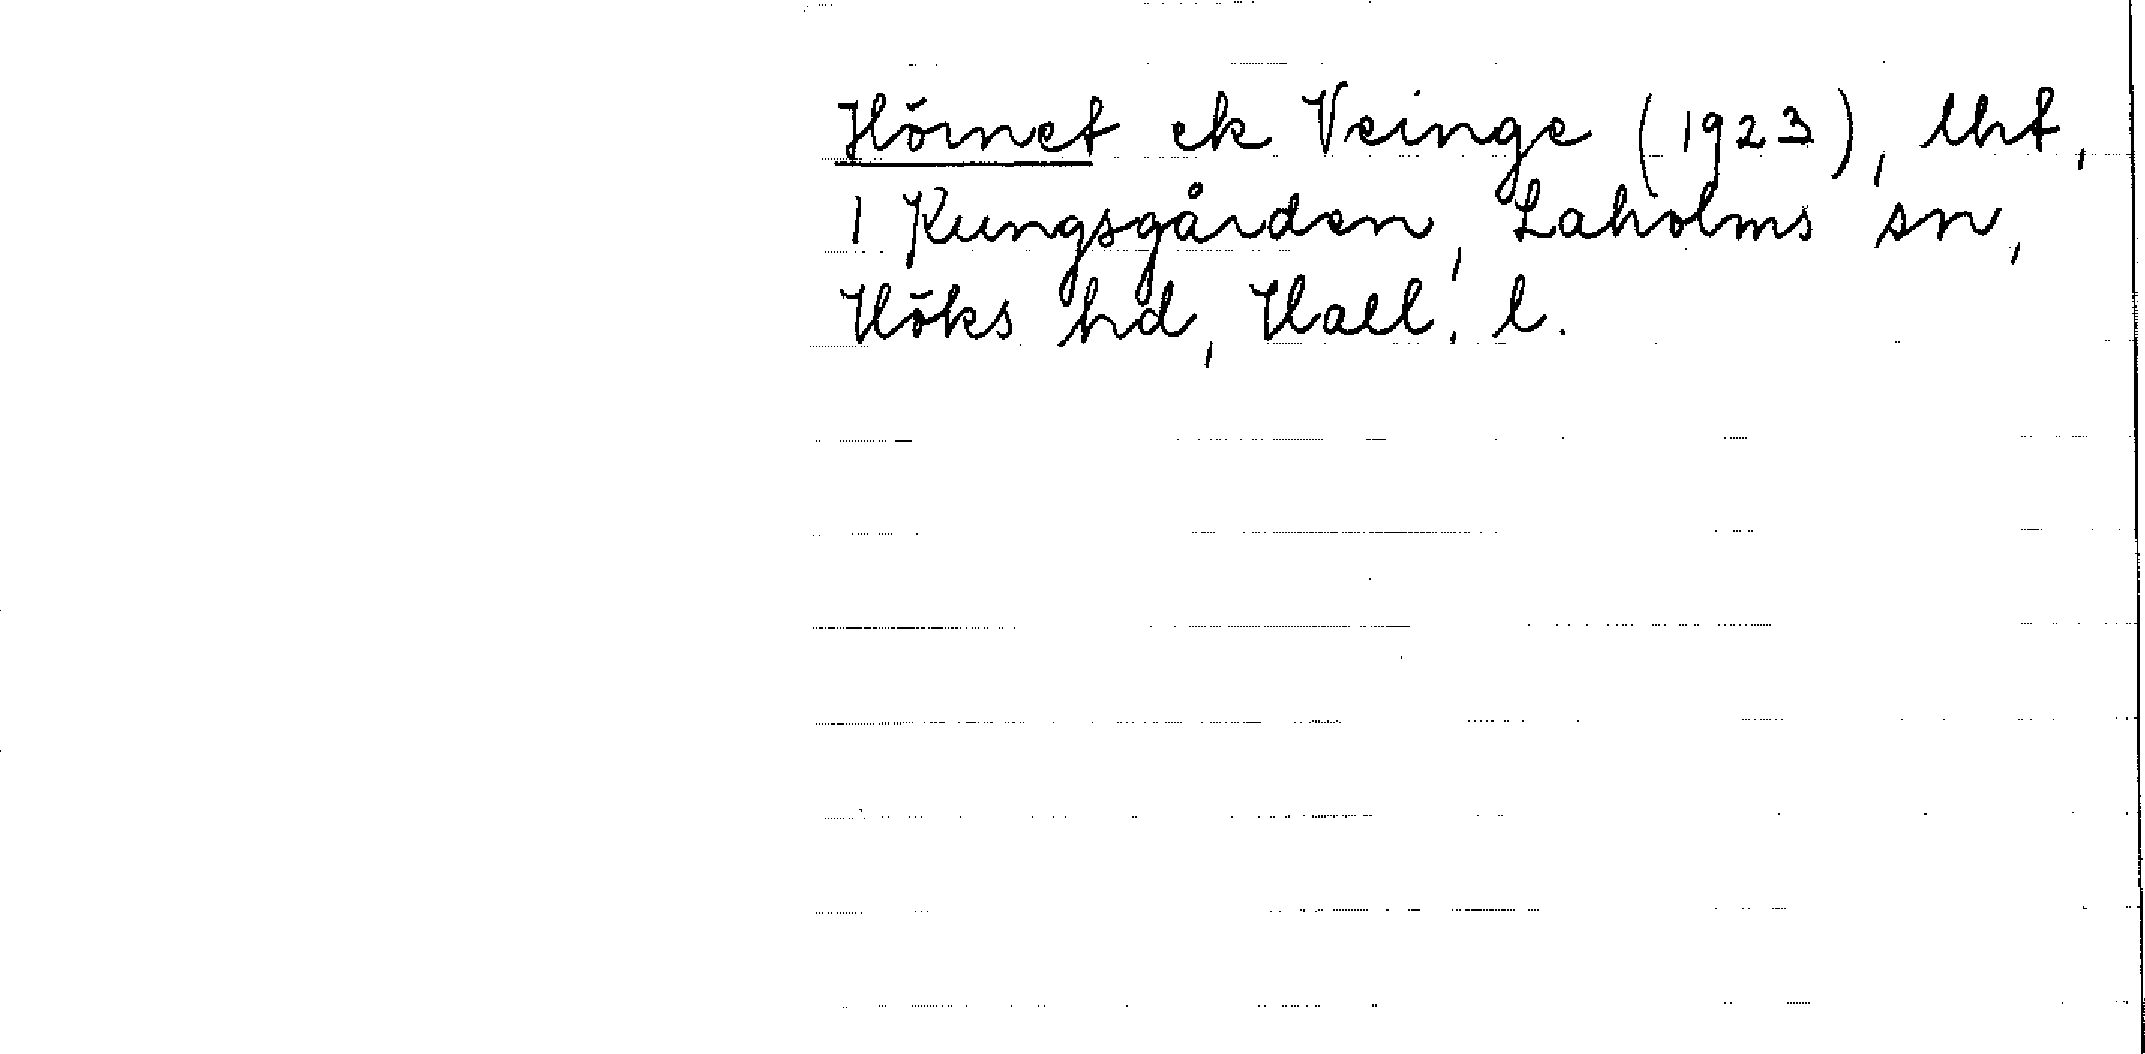 Hörnet ek Veinge (1923), lht,
1 Kungsgården, Laholms sn,
Höks hd, Hall. l.